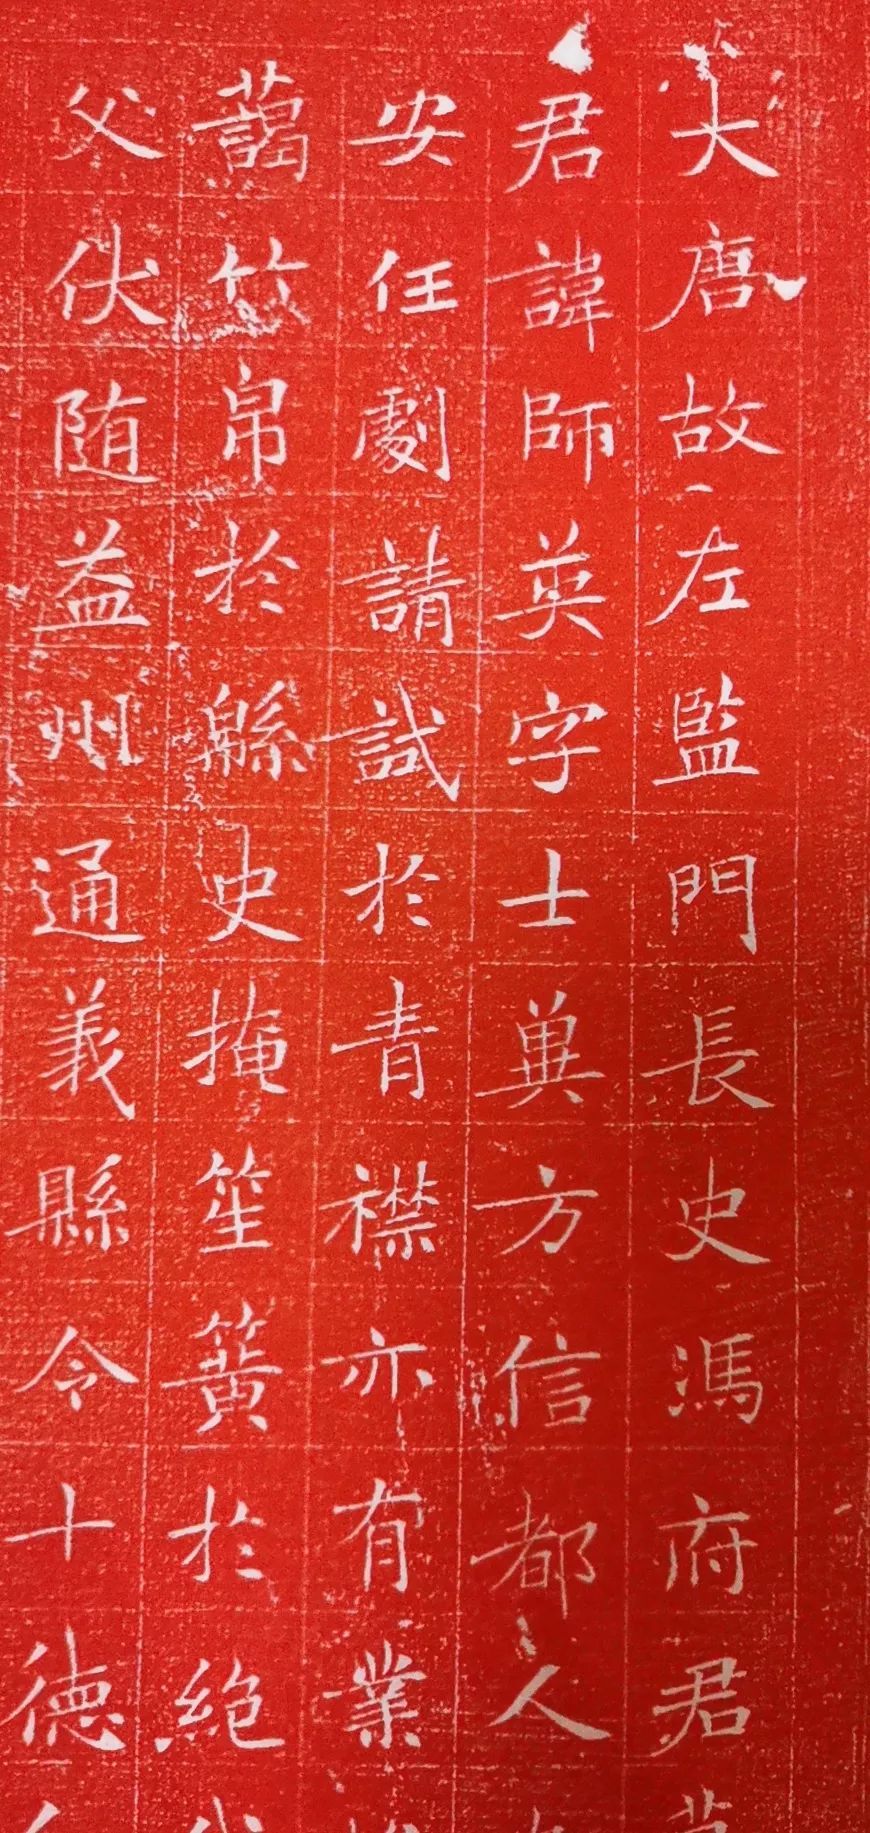 大唐故左監門長史馮府君
君諱師英字士㒹方信都人
安任劇請試於青襟亦有業
藹竹帛於緜史掩笙簧於絶
父伏随益州通義縣令十德